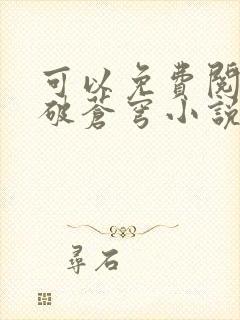 可以免費閱
破蒼穹小說
尋石